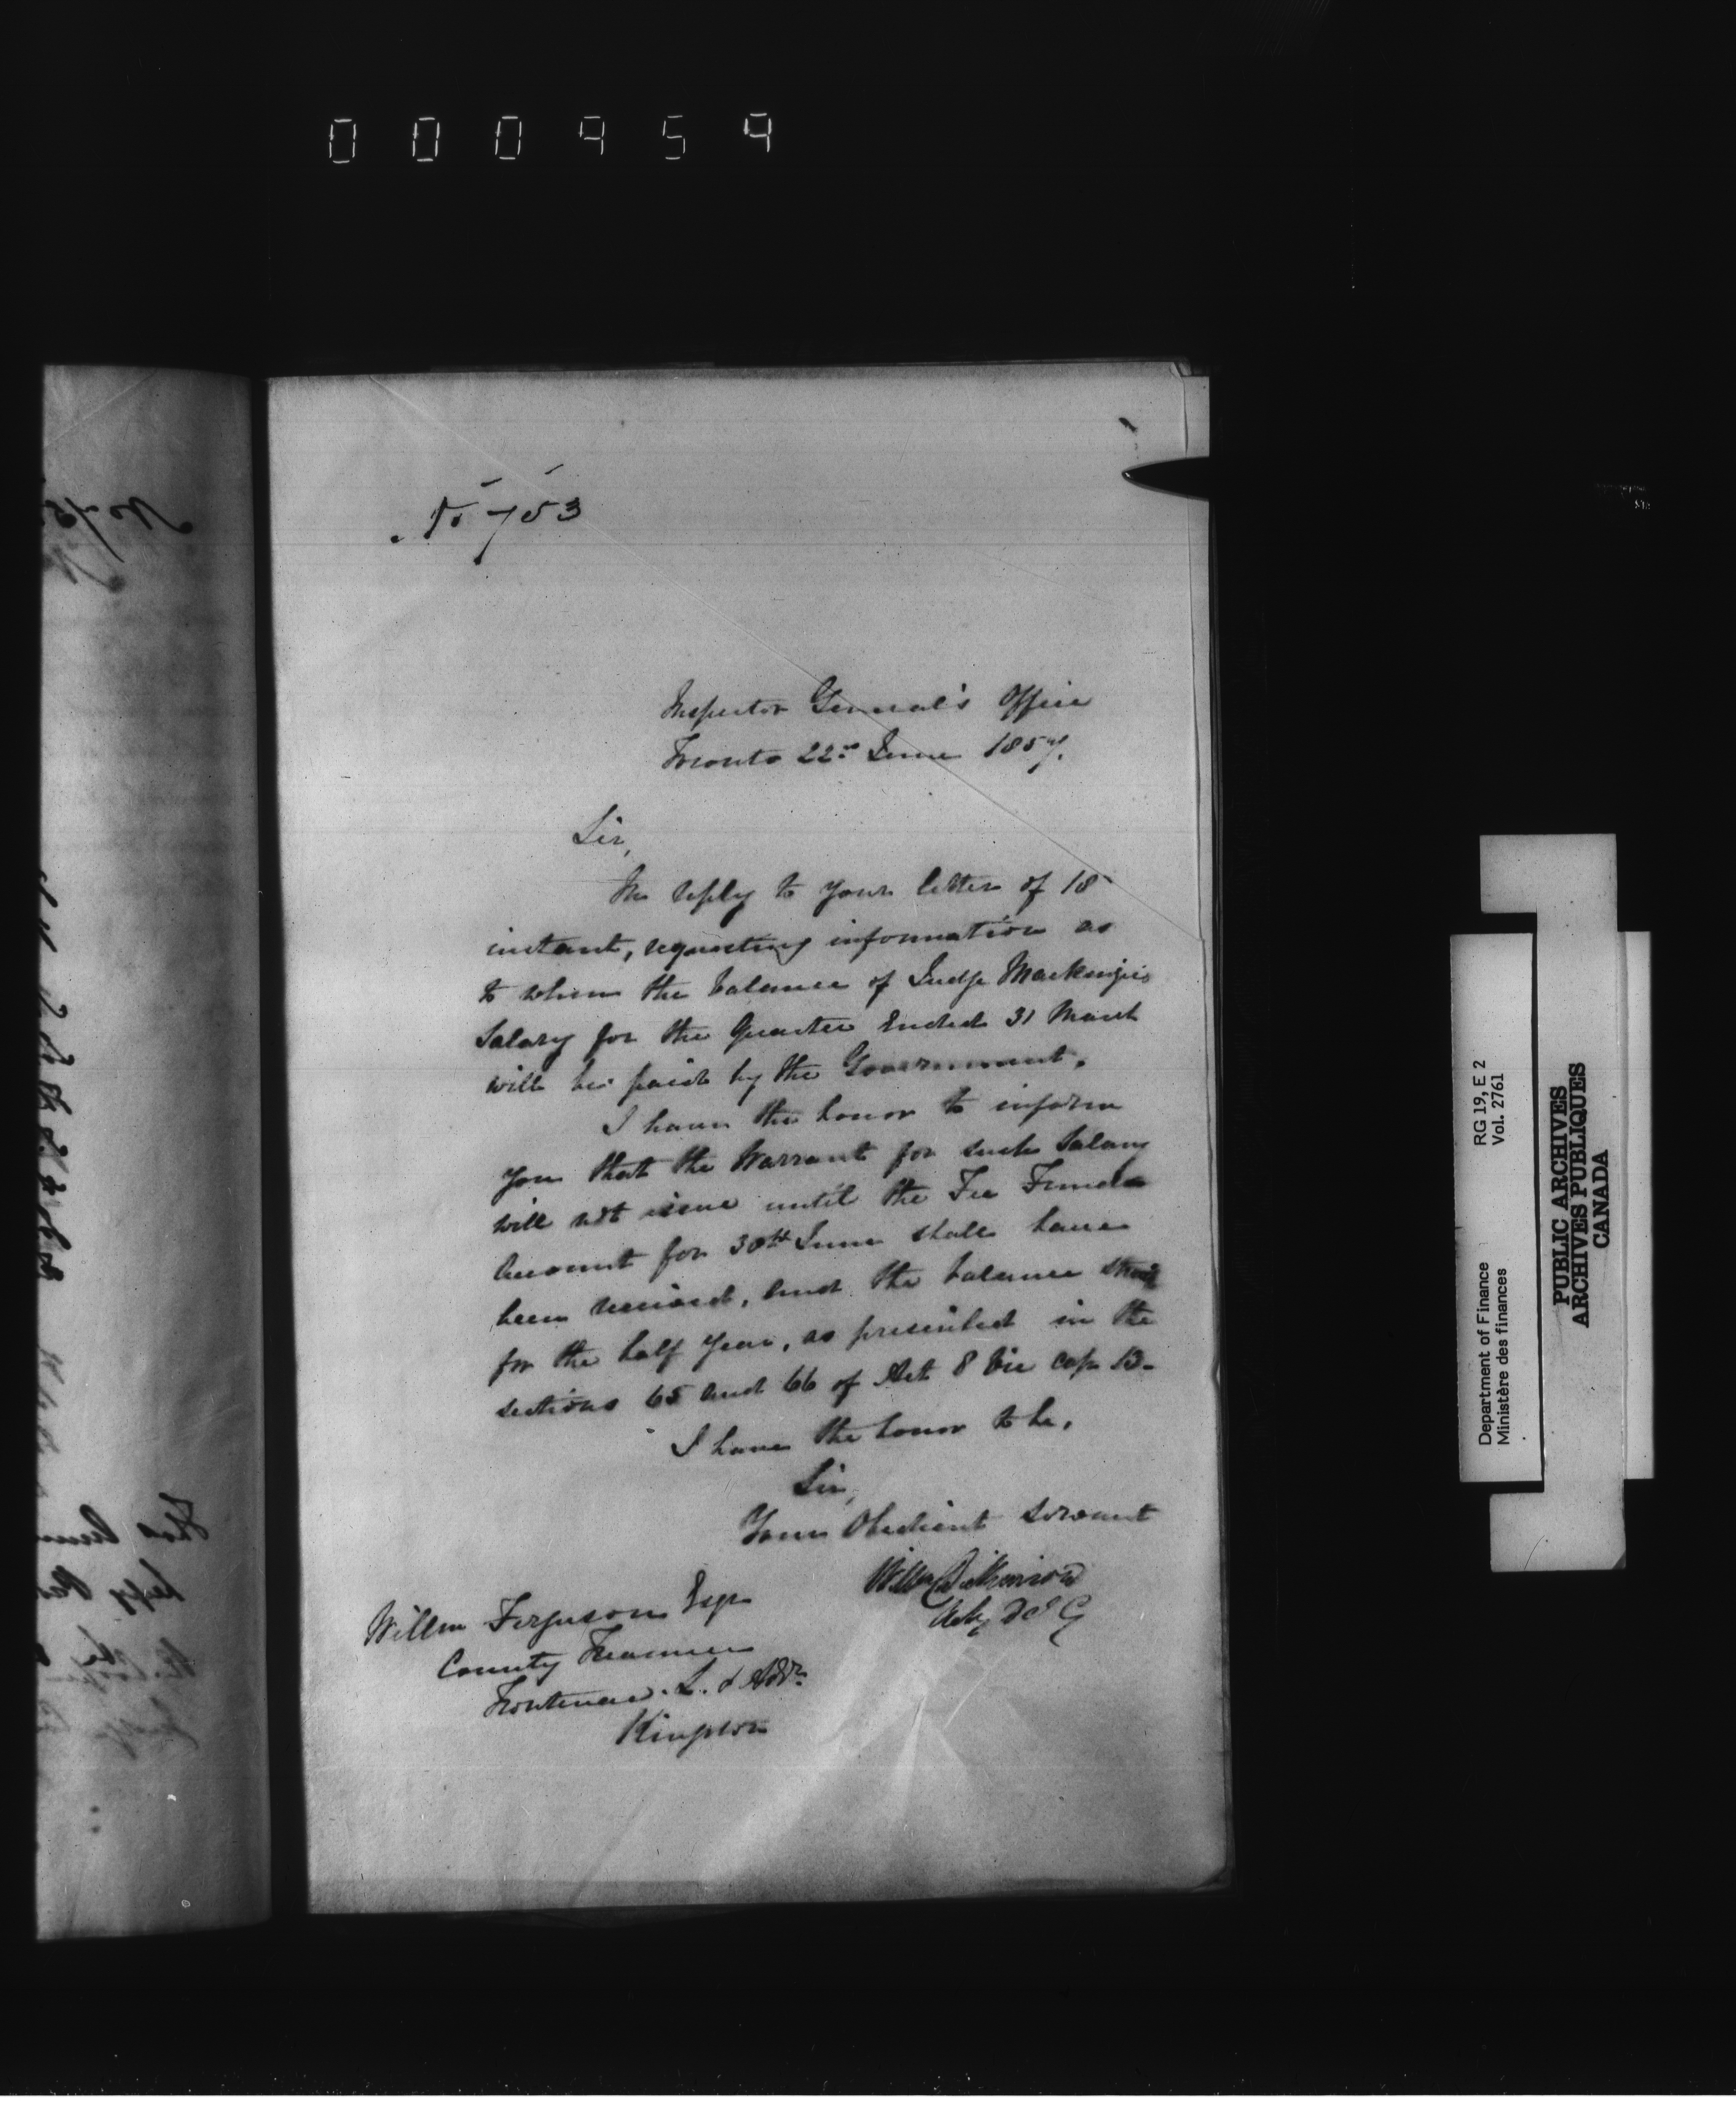 000954
No 753
Inspector General's Office
Toronto 22nd June 1857.
Sir,
In reply to your letter of 18
instant, requesting information as
to when the balance of Judge Mackenzie's
Salary for the Quarter Ended 31 March
will be paid by the Government.
I have the honor to inform
you that the Warrant for such Salary
will not issue until the Fee Funds
Account for 30th June shall have
been received, and the balance struck
for the half year, as prescribed in the
sections 65 and 66 of Act 8 Vic cap 13-
I have the honor to be,
Sir,
Your Obedient servant
Wm Dickinson
Actg D I G
Willm Ferguson Esqr
County Treasurer
Frontenac. L. & Add.
Kingston
Department of Finance RG 19, E 2
Ministère des finances Vol. 2761
PUBLIC ARCHIVES
ARCHIVES PUBLIQUES
CANADA